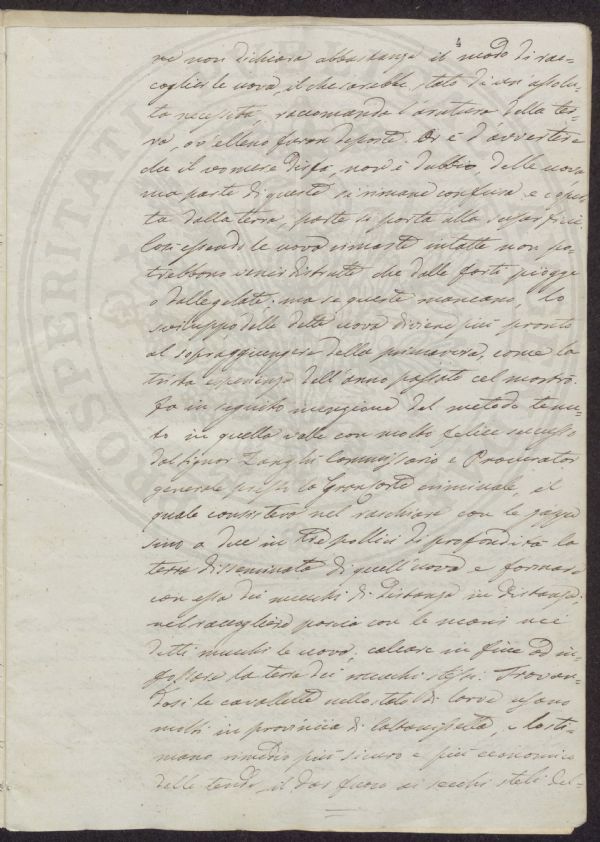 4
ne non dichiara abbastanza il modo di rac-
coglier le uova, il che sarebbe stato di un'assolu-
ta necessità, raccomanda l'aratura della ter-
ra, ov'elleno furon deposte. Or è d'avvertire
che il vomere disfa, non v'è dubbio, delle uova,
ma parte di queste si rimane confusa e
ta dalla terra, parte si porta alla superficie.
Così essendo le uova rimaste intatte non po-
trebbono venir distrutte che dalle forti piogge
o dalle gelate: ma se queste mancano, lo
sviluppo delle dette uova diviene più pronto
al sopraggiungere della primavera, come la
trista esperienza dell'anno passato cel mostrò.
Fa in seguito menzione del metodo tenu-
to in quella valle con molto felice successo
dal Signor Zanghi Commissario e Procurator
generale presso la Gran Corte criminale, il
quale consisteva nel raschiare con la zappa
sino a due in tre pollici di profondità la
terra disseminata di quell'uova e formare
con essa dei mucchi di distanza in distanza;
nel raccogliere poscia con le mani nei
detti mucchi le uova, calcare in fine ed in-
fossare la terra dei mucchi stessi. Trovan-
dosi le cavallette nello stato di larve usano
molti in provincia di Caltanissetta, e lo sti-
mano rimedio più sicuro e più economico
delle tende, il dar fuoco ai secchi steli del-